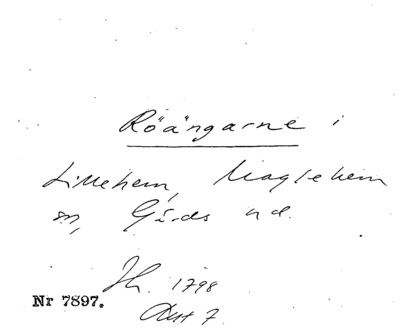 Röängarne i
Lillehem, Maglehem
sn, Gärds hd.
Sk. 1798
Akt 7
Nr 7897.